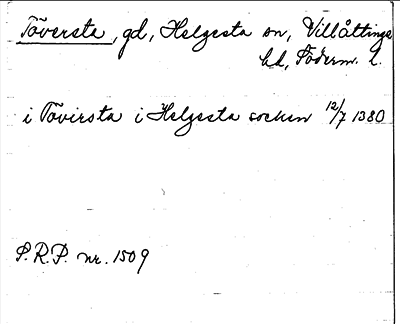 Töversta, gd, Helgesta sn, Villåttinge
hd, Söderm. l.
i Tövirsta i Helgesta socken 12/7 1380
S.R.P. nr. 1509